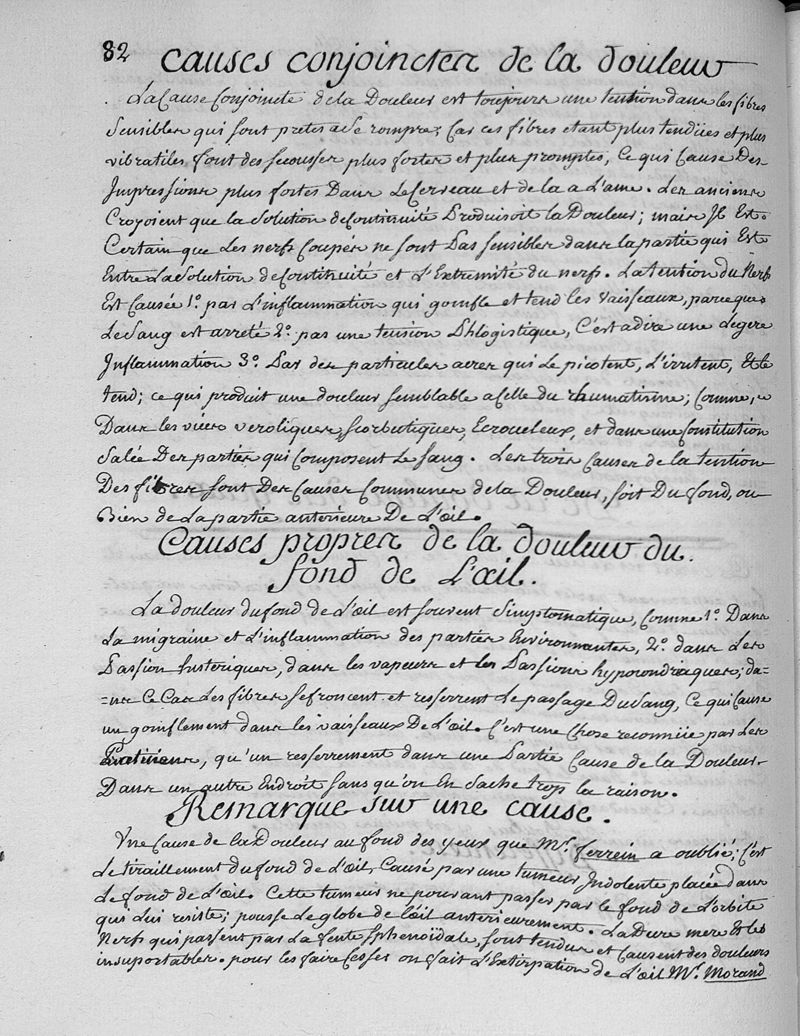 82
Causes conjoinctes de la douleur
La Cause Conjointe de la Douleur est toujours une tention dans les fibres
Sensibles qui sont pretes a se rompre; Car ces fibres etant plus tendües et plus
vibratiles font des secousses plus fortes et plus promptes, Ce qui Cause Des
Impressions plus fortes Dans Le Cerveau et de la a L'ame. Les anciens
Croyoient que la Solution de Continuité Produisoit la Douleur; mais Il Est
Certain que Les nerfs Coupés ne sont Pas sensibles dans la partie qui Est
Entre La Solution de Contituité et L'Extremité du nerf. La tention du Nerf
Est Causée 1.º par L'inflammation qui gonfle et tend les Vaisseaux, parceque
Le Sang est arreté 2.º pas une tension Phlogistique, C'est a dire une Legere
Inflammation 3.º Par des particules acres qui Le picotent, L'irritent, Et le
tend; ce qui produit une douleur semblable a Celle du rhumatisme; Comme,
Dans les vices véroliques, scorbutiques, Ecrouelleux, et dans une Constitution
Salée Des parties qui Composent Le Sang. Les trois Causes de la tention
Des fibres sont Des Causes Communes de la Douleur, soit Du fond, ou
Bien de La partie anterieure De L'œil.
Causes propres de la douleur du
fond de L'œil.
La douleur du fond de L'œil est souvent Simptomatique, Comme 1.º Dans
La migraine et L'inflammation des parties Environnantes, 2.º dans Les
Passion histeriques, dans les vapeurs et les Passions hypocondriaques; da=
=ns Ce Cas Les fibres se froncent et resserrent Le passage Du Sang, Ce qui Cause
un gonflement dans les vaisseaux De L'œil. C'est une Chose reconnüe par Les
Praticiens, qu'un resserrement dans une Partie Cause de la Douleur
Dans un autre Endroit sans qu'on En Sache trop la raison.
Remarque sur une cause.
Une Cause de la Douleur au fond des yeux que Mr. ferrein a oublié; C'est
Le tiraillement du fond de L'œil, Causé par une tumeur Indolente placée dans
Le fond de L'œil. Cette tumeur ne pouvant passer par le fond de L'orbite
qui Lui resiste; pousse Le globe de L'œil anterieurement. La Dure mere Et les
Nerfs qui passent par La fente Sphenoïdale, sont tendus et Causent des douleurs
insuportables. pour les faire Cesser on fait L'Extirpation de L'œil Mr. Morand